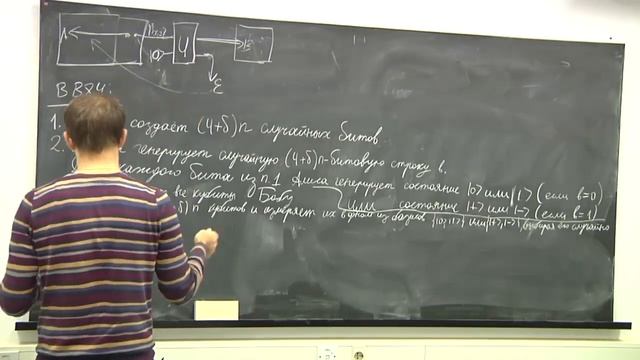 |0⟩
U
ε
BB84:
1. создаёт (4+δ)n случайных битов
2. генерирует случайную (4+δ)n-битовую строку b.
каждого бита из п.1 Алиса генерирует состояние |0⟩ или |1⟩ (если b=0)
или состояние |+⟩ или |−⟩ (если b=1)
все кубиты Бобу
n кубитов и измеряет их в одном из базисов {|0⟩,|1⟩} или {|+⟩,|−⟩}, выбирая его случайно